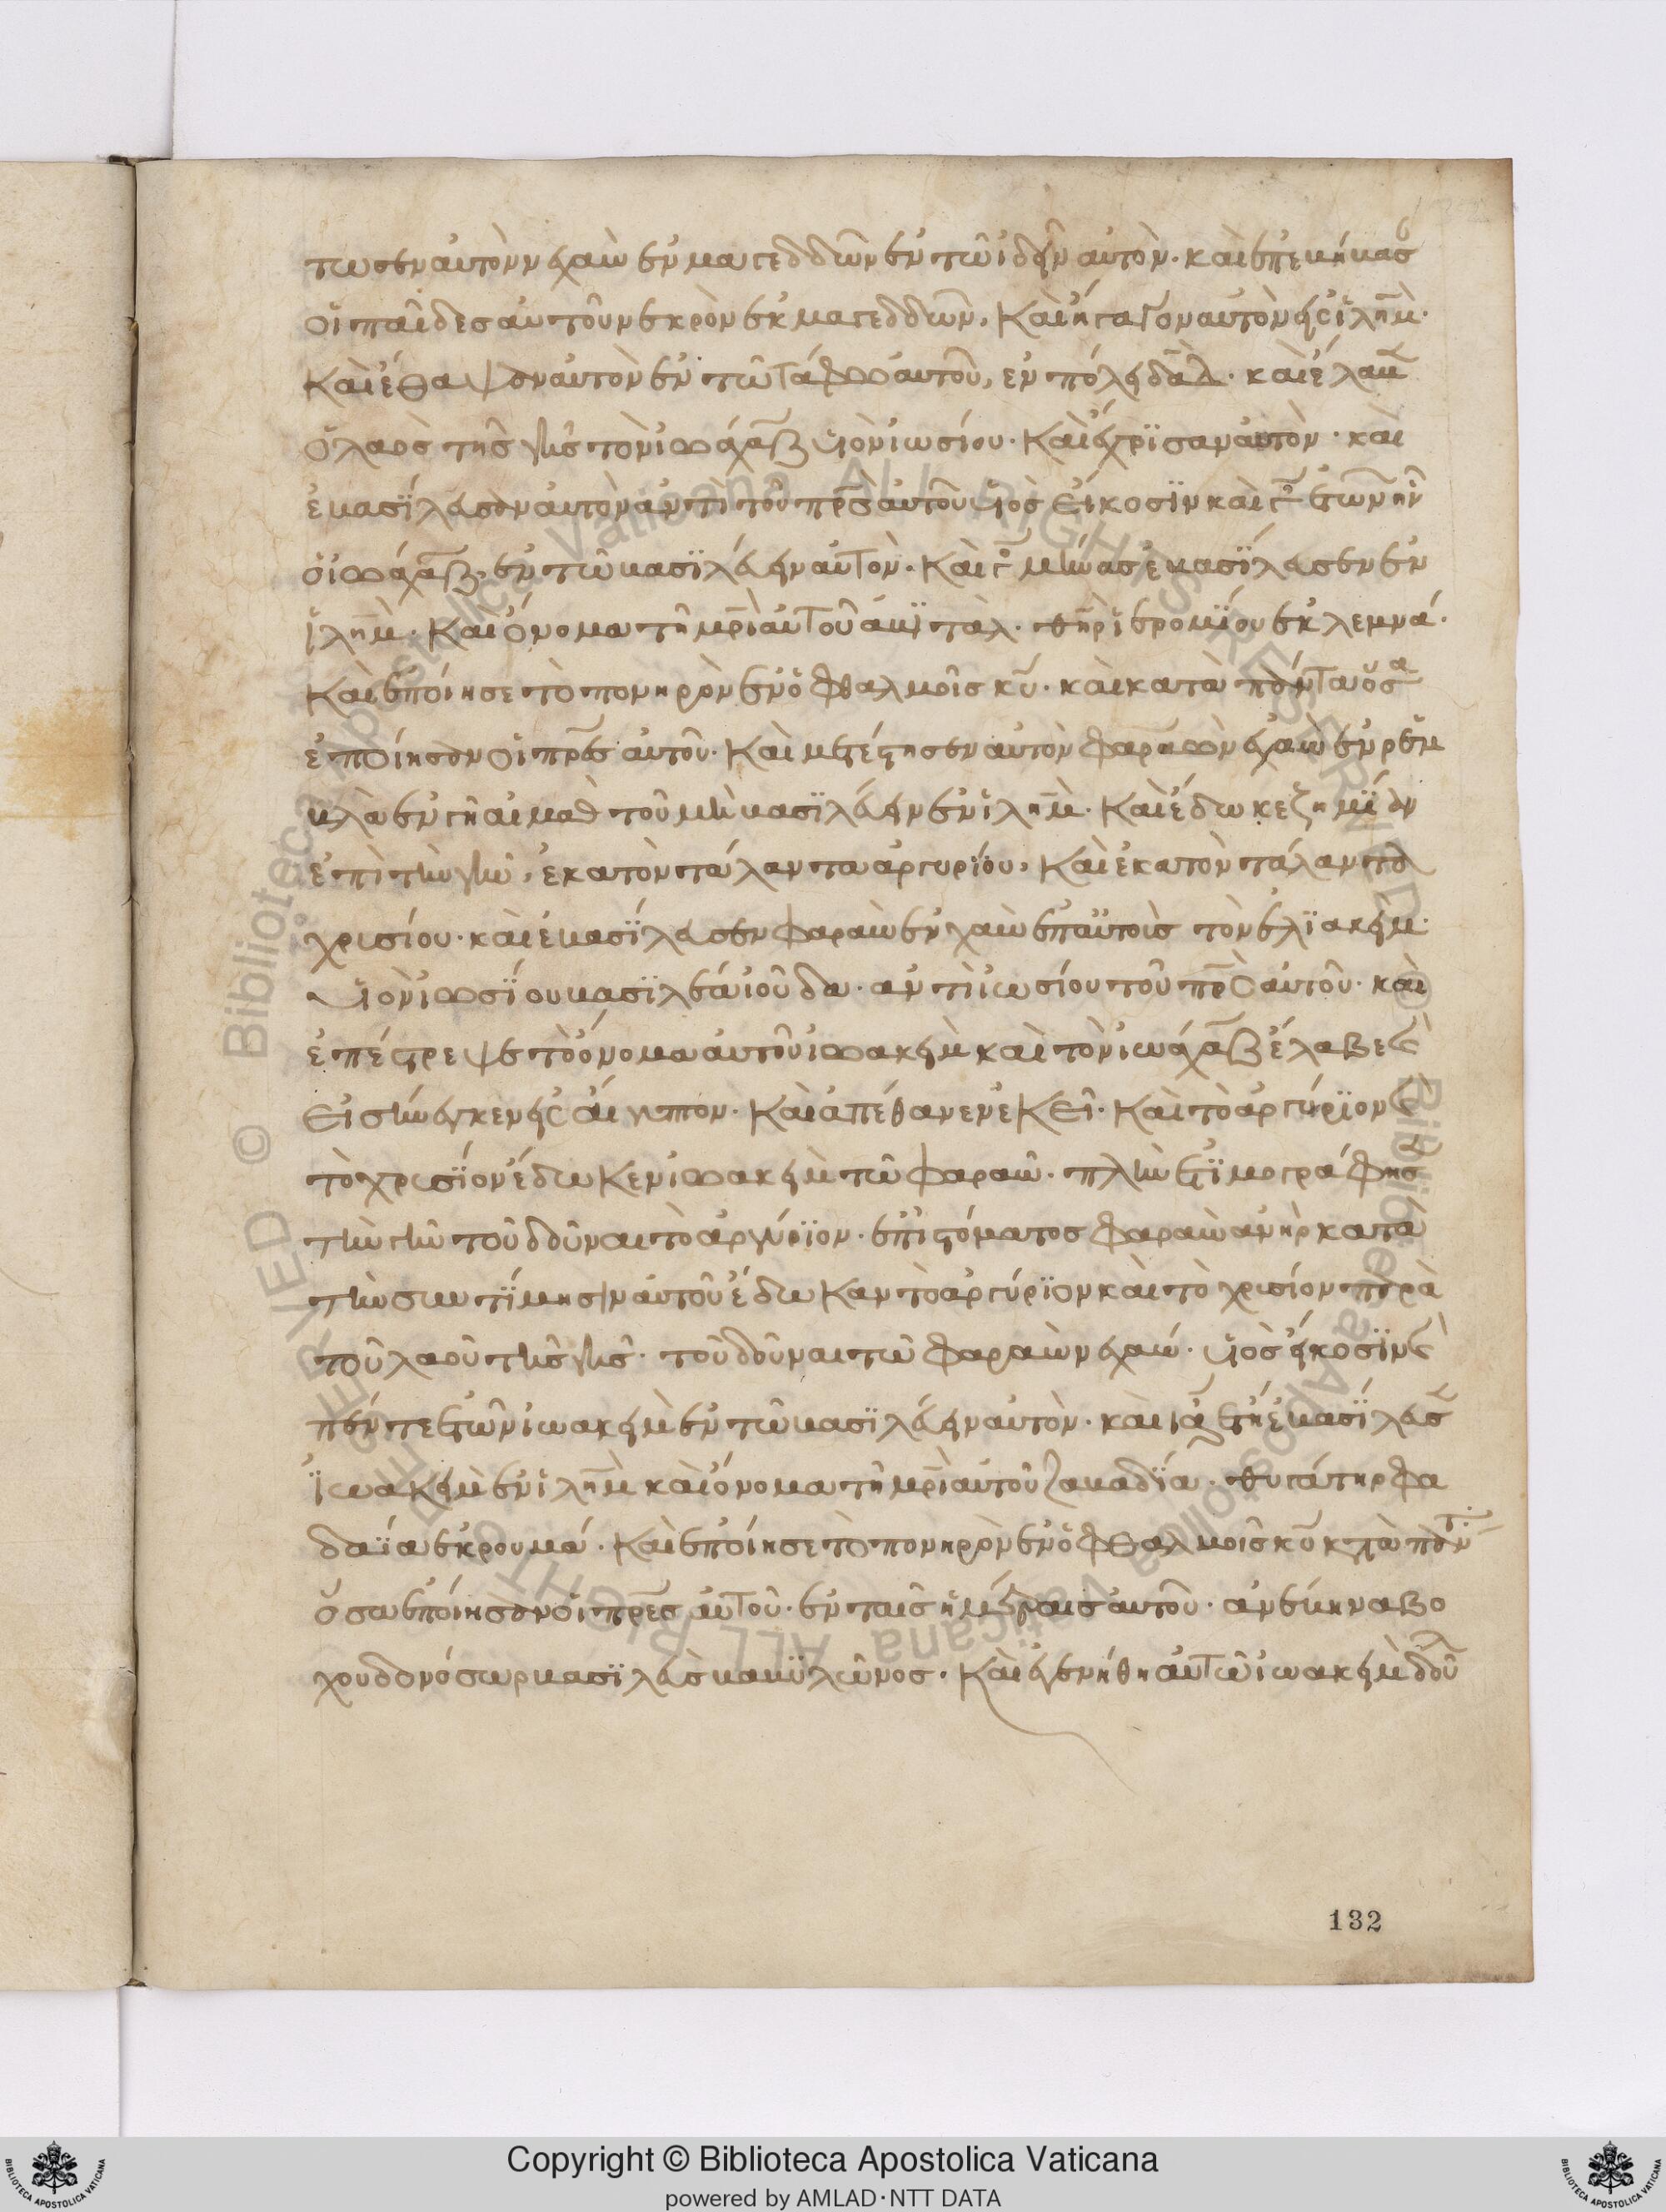 πωσεν αὐτὸν νεχαὼ ἐν μαγεδδῶν ἐν τῶ ἰδεῖν αὐτὸν. καὶ ἐπεβήβασ
οἱ παῖδες αὐτοῦ νεκρὸν ἐκ μαγεδδῶν, καὶ ἤγαγον αὐτὸν εἰς ἰλημ.
καὶ ἔθαψαν αὐτὸν ἐν τῶ τάφω αὐτοῦ, ἐν πόλει δαδ. καὶ ἔλαβ
ὁ λαὸς τῆς γῆς τὸν ἰωάχαζ υἱὸν ἰωσίου. καὶ ἔχρϊσαν αὐτὸν. καὶ
ἐβασΐλευσαν αὐτὸν ἀντὶ τοῦ πρσ αὐτοῦ υἱὸς εἴκοσϊν καὶ γ ἐτῶν ἦν
ὁ ἰωάχαζ, ἐν τῶ βασϊλεύειν αὐτὸν. καὶ γ μῆνας ἐβασΐλευσεν ἐν
ἰλημ. καὶ ὄνομα τῆ μρι αὐτοῦ ἀμϊτὰλ. θηρ ἱερομΐου ἐκ λεμνά.
καὶ ἐποίησε τὸ πονηρὸν ἐν ὀφθαλμοῖς κυ. καὶ κατὰ πάντα ὅσα
ἐποίησαν οἱ πρες αὐτοῦ. καὶ μετέστησεν αὐτὸν φαραὼν εχαὼ ἐν ρεβ
βλὰ ἐν γῆ αἱμαθ τοῦ μὴ βασϊλεύειν ἐν ἰλημ. καὶ ἔδωκε ζημΐαν
ἐπὶ τὴν γῆν, ἑκατὸν τάλαντα ἀργυρίου, καὶ ἑκατὸν τάλαντα
χρυσίου. καὶ ἐβασΐλευσεν φαραὼ ἐν χαὼ ἐπ αὐτοῖς τὸν ἐλϊακεὶμ
υἱὸν ἰωσΐου βασϊλέα ἰοῦδα. ἀντὶ ἰωσίου τοῦ προ αὐτοῦ. καὶ
ἐπέστρεψε τὸ ὄνομα αὐτοῦ ἰωακεὶμ καὶ τὸν ἰωάχαζ ἔλαβε καὶ
εἰσήνεγκεν εἰς αἴγυπτον. καὶ ἀπέθανεν ἐκεῖ. καὶ τὸ ἀργύρϊον καὶ
τὸ χρυσΐον ἔδωκεν ἰωακεὶμ τῶ φαραῶ. πλὴν ἐτϊμογράφησ
τὴν γῆν τοῦ δοῦναι τὸ ἀργύρϊον. ἐπὶ στόματος φαραὼ ἀνὴρ κατὰ
τὴν συντΐμησϊν αὐτοῦ ἔδωκαν τὸ ἀργύρϊον καὶ τὸ χρυσίον παρὰ
τοῦ λαοῦ τῆς γῆς. τοῦ δοῦναι τῶ φαραὼ νεχαώ. υἱὸς εἴκοσϊν καὶ
πέντε ἐτῶν ἰωακεὶμ ἐν τῶ βασϊλεύειν αὐτὸν. καὶ ια ἔτη ἐβασΐλευσ
ἰωακεὶμ ἐν ἰλημ καὶ ὄνομα τῆ μρι αὐτοῦ ζαβαδΐα. θυγάτηρ φα
δαΐα ἐκ ρουμά. καὶ ἐποίησε τὸ πονηρὸν ἐν ὀφθαλμοῖς κυ κατὰ πάντ
ὅσα ἐποίησαν οἱ πρες αὐτοῦ. ἐν ταῖς ἡμέραις αὐτοῦ. ἀνέβη ναβο
χουδονόσωρ βασϊλεὺς βαβϋλῶνος. καὶ ἐγενήθη αὐτῶ ἰωακεὶμ δοῦλ
132
Copyright © Biblioteca Apostolica Vaticana
powered by AMLAD·NTT DATA